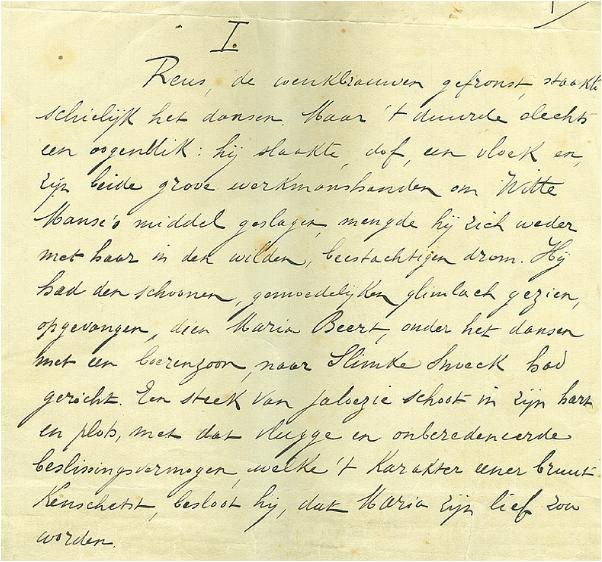 I.
Reus, de wenkbrauwen gefronst, staakte
schielijk het dansen. Maar 't duurde slechts
een oogenblik: hij slaakte, dof, een vloek en,
zijn beide grove werkmanshanden om Witte
Manse's middel geslagen, mengde hij zich weder
met haar in den wilden, beestachtigen drom. Hij
had den schoonen, gemoedelijken glimlach gezien,
opgevangen, dien Maria Beert, onder het dansen
met een boerenzoon, naar Slimke Snoeck had
gericht. Een steek van jaloezie schoot in zijn hart
en plots, met dat vlugge en onberedeneerde
beslissingsvermogen, welke 't karakter eener bruut
kenschetst, besloot hij, dat Maria zijn lief zou
worden.